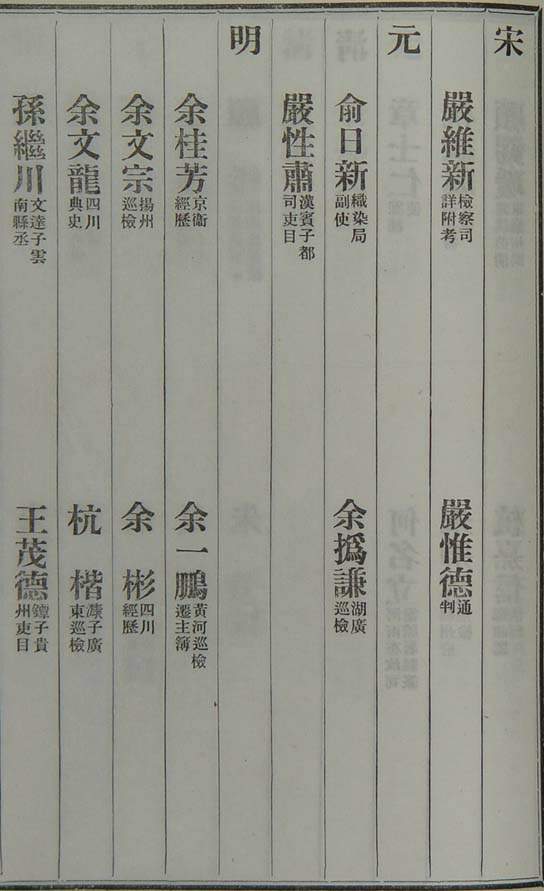 宋
嚴維新 檢察司詳附考 嚴惟德 通判
元
俞日新 織染局副使 余撝謙 湖廣巡檢
嚴性肅 漢賓子都司吏目
明
余桂芳 京衛經歷 余一鵬 黃河巡檢遷主簿
余文宗 揚州巡檢 余彬 四川經歷
余文龍 四川典史 杭楷 濂子廣東巡檢
孫繼川 文達子雲南縣丞 王茂德 鐔子貴州吏目